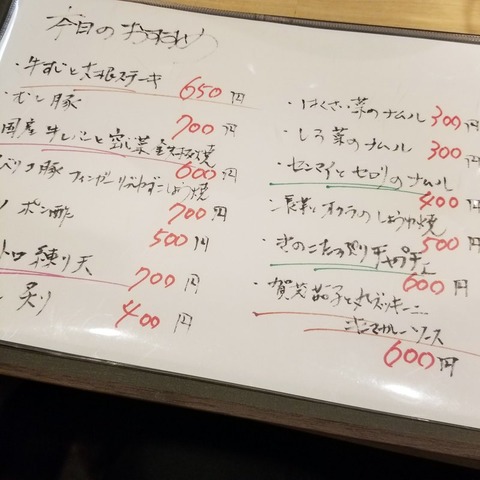 今日のおすすめ
・牛すじと大根ステーキ
650円
むし豚
700円
国産牛レバーと空心菜鉄板焼
600円
豚フィンガーリブねぎこしょう焼
700円
ポン酢
500円
トロ練り天
700円
炙り
400円
・はくさい菜のナムル 300円
・しろ菜のナムル 300円
・ゼンマイとセロリのナムル
400円
・長芋とオクラのしょうゆ焼
500円
・きのこたっぷりチャプチェ
600円
・賀茂茄子と丸ズッキーニ
ソース
600円